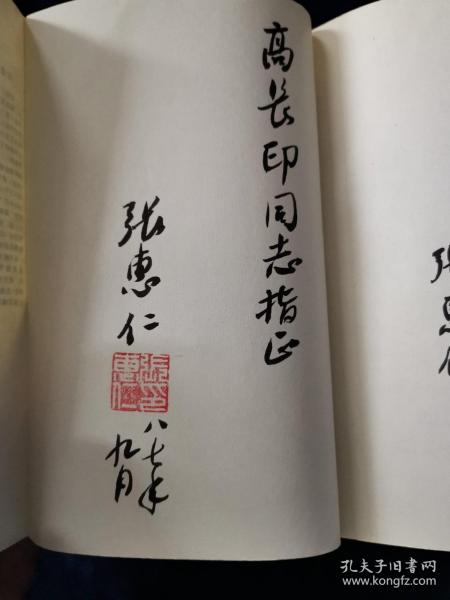 高长印同志指正
张惠仁
张惠仁印
八七年
九月
张惠仁
孔夫子旧书网
www.kongfz.com